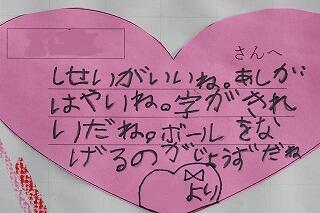 さんへ
しせいがいいね。あしが
はやいね。字がきれ
いだね。ボールをな
げるのがじょうずだね
より